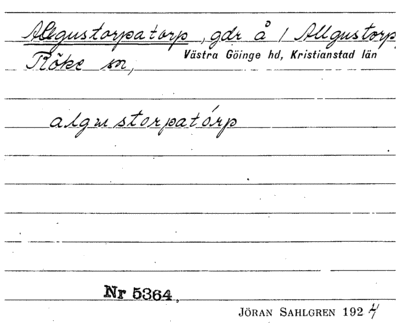 Allgustorpatorp, gdr å 1 Allgustorp,
Röke sn, Västra Göinge hd, Kristianstad län
algustorpatórp
Nr 5364.
JÖRAN SAHLGREN 1924